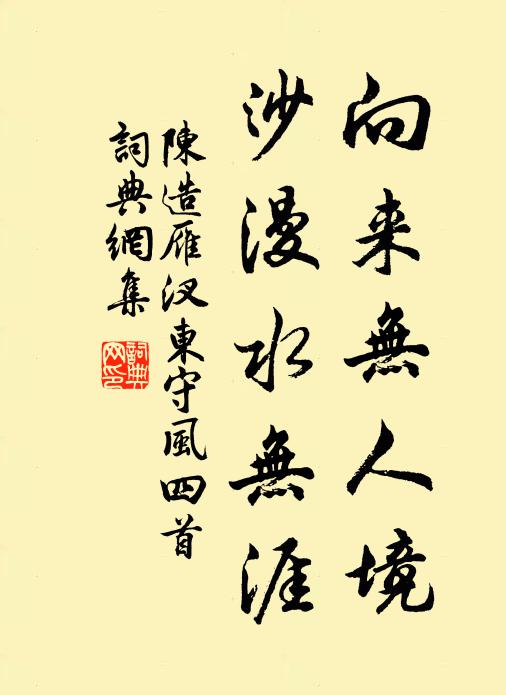 向来無人境
沙漫水無涯
陳造雁汊東守風四首
詞典網集
詞典網印